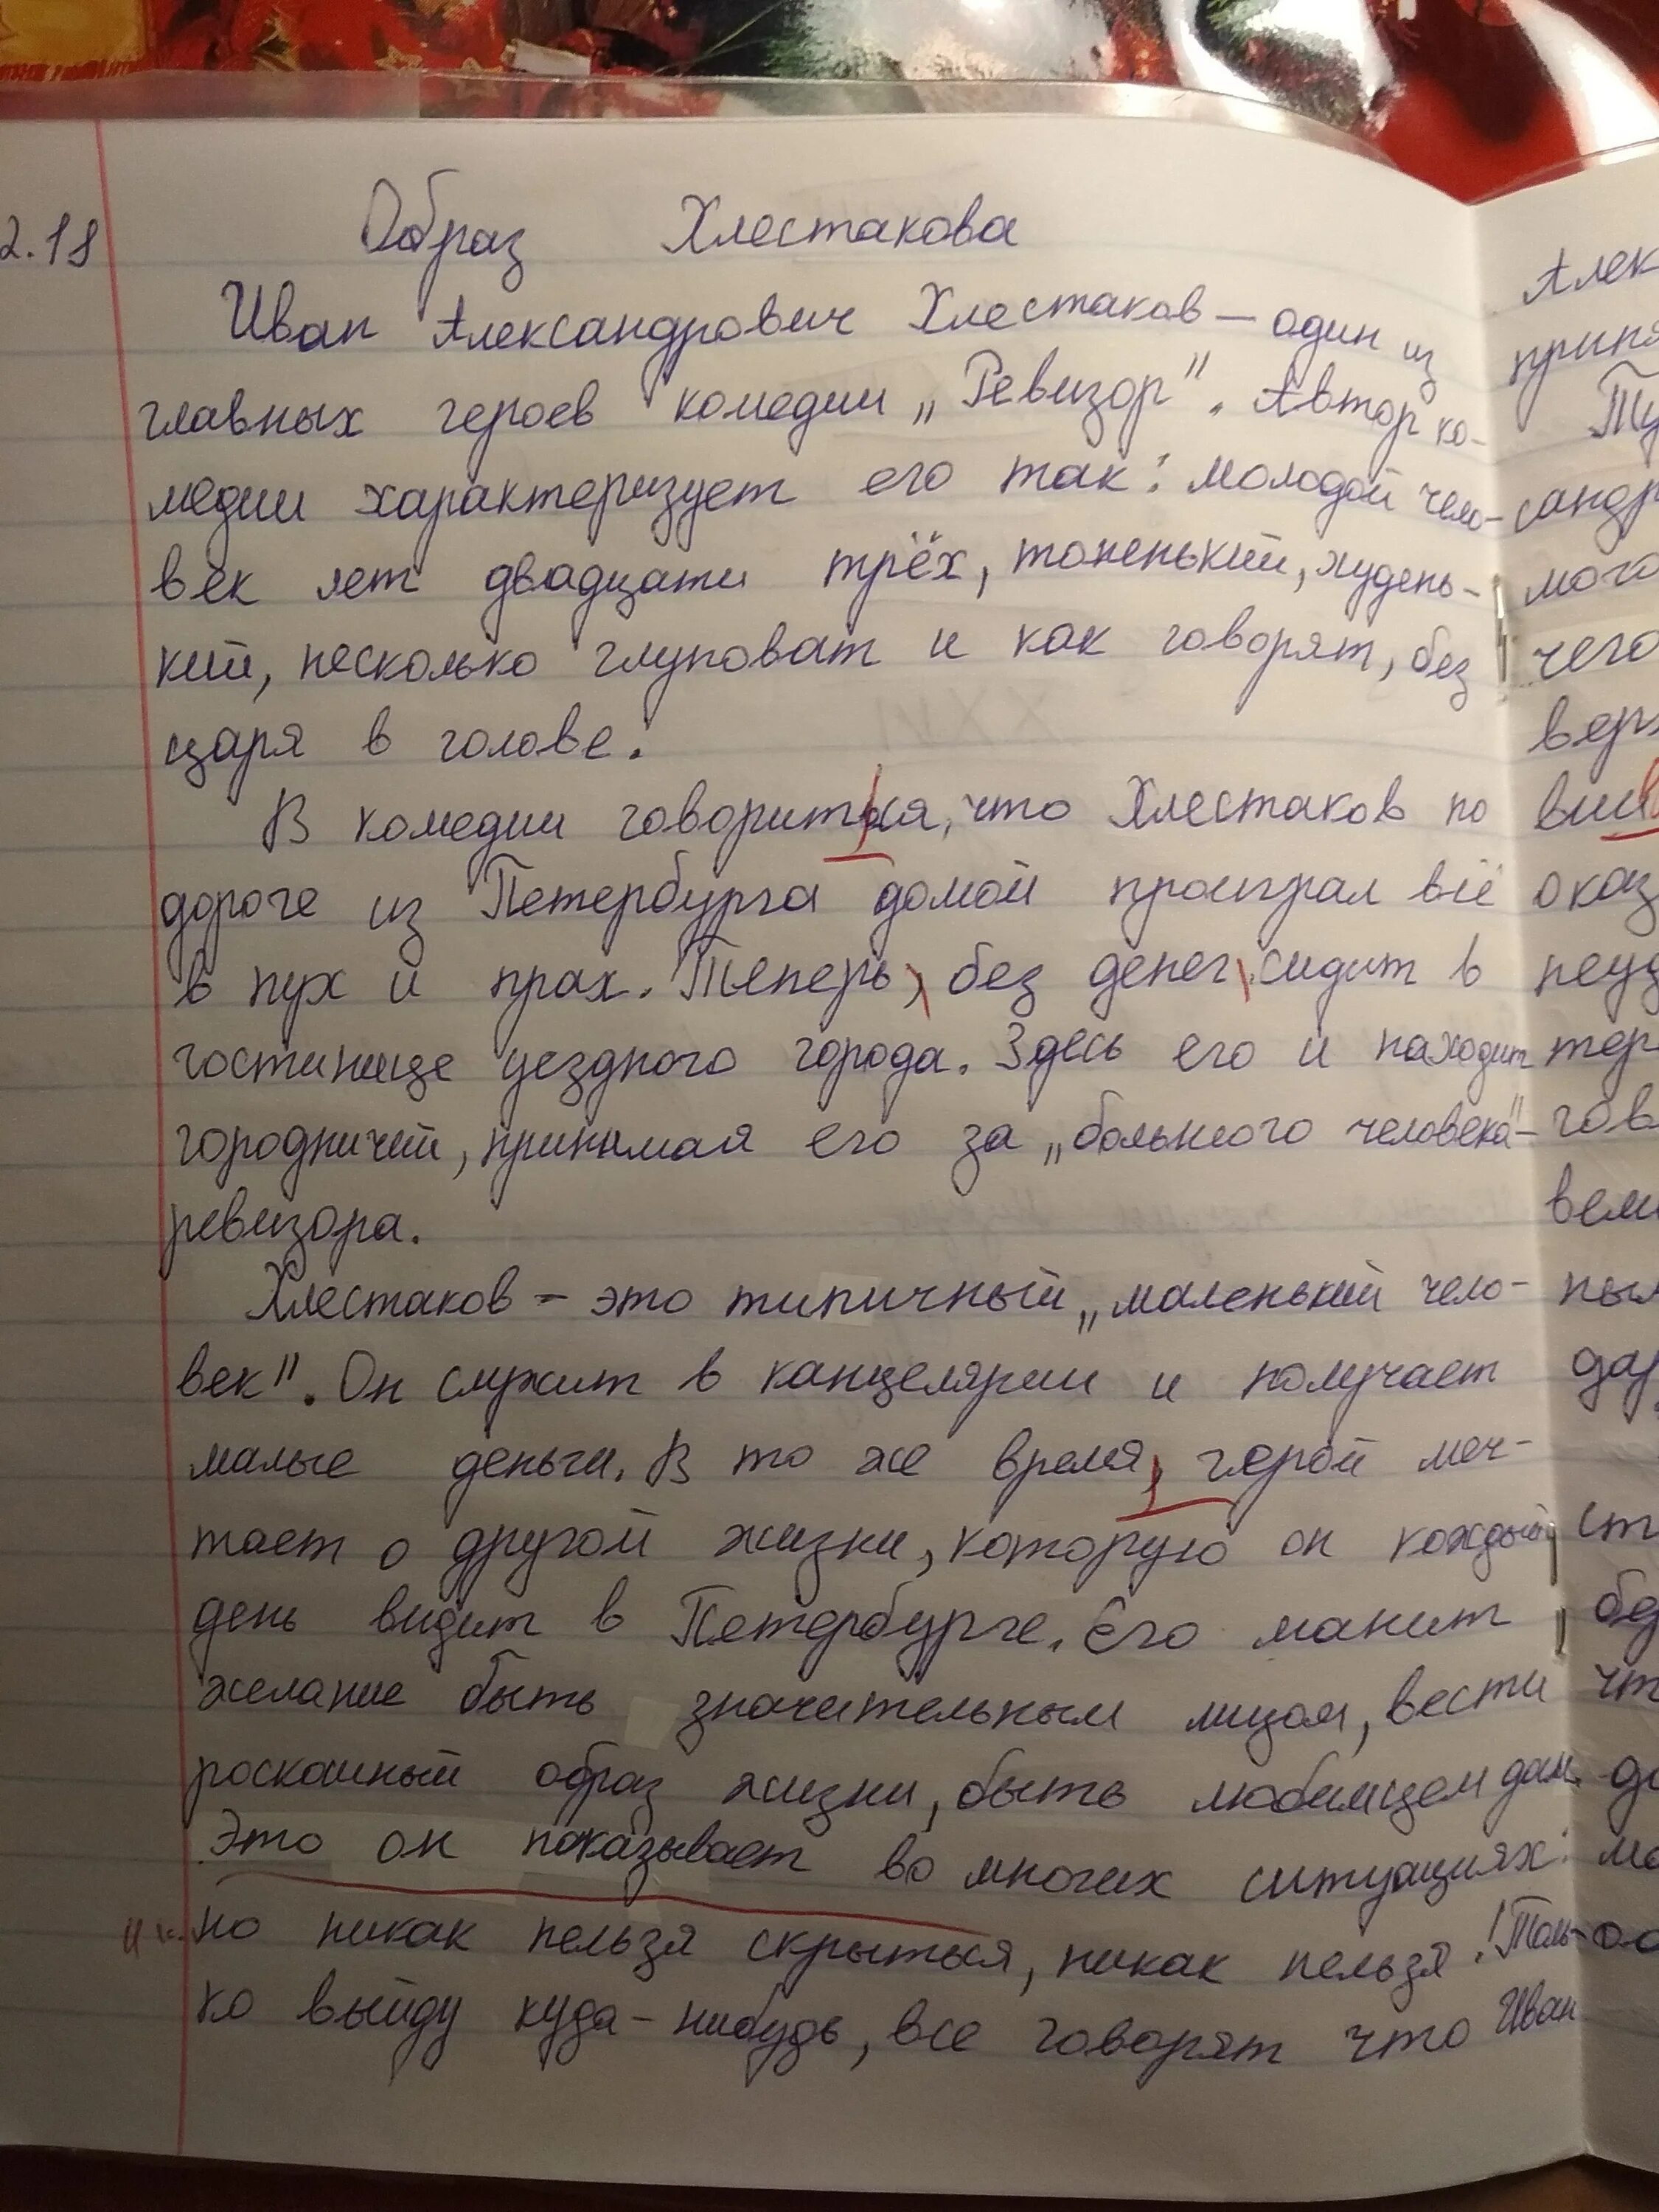 2.18
Образ Хлестакова
Иван Александрович Хлестаков – один из
главных героев комедии „Ревизор". Автор ко-
медии характеризует его так: молодой чело-
век лет двадцати трёх, тоненький, худень-
кий, несколько глуповат и как говорят, без
царя в голове.
В комедии говориться, что Хлестаков по
дороге из Петербурга домой проиграл всё
в пух и прах. Теперь, без денег, сидит в
гостинице уездного города. Здесь его и находит
городничий, принимая его за „большого человека" –
ревизора.
Хлестаков – это типичный „маленький чело-
век". Он служит в канцелярии и получает
малые деньги. В то же время, герой меч-
тает о другой жизни, которую он каждый
день видит в Петербурге. Его манит
желание быть значительным лицом, вести
роскошный образ жизни, быть любимцем дам.
Это он показывает во многих ситуациях:
но никак нельзя скрыться, никак нельзя! Толь-
ко выйду куда-нибудь, все говорят что Иван
Алек
Ту
сандр
мого
чего
оказ
неуд
гов
дар
ст